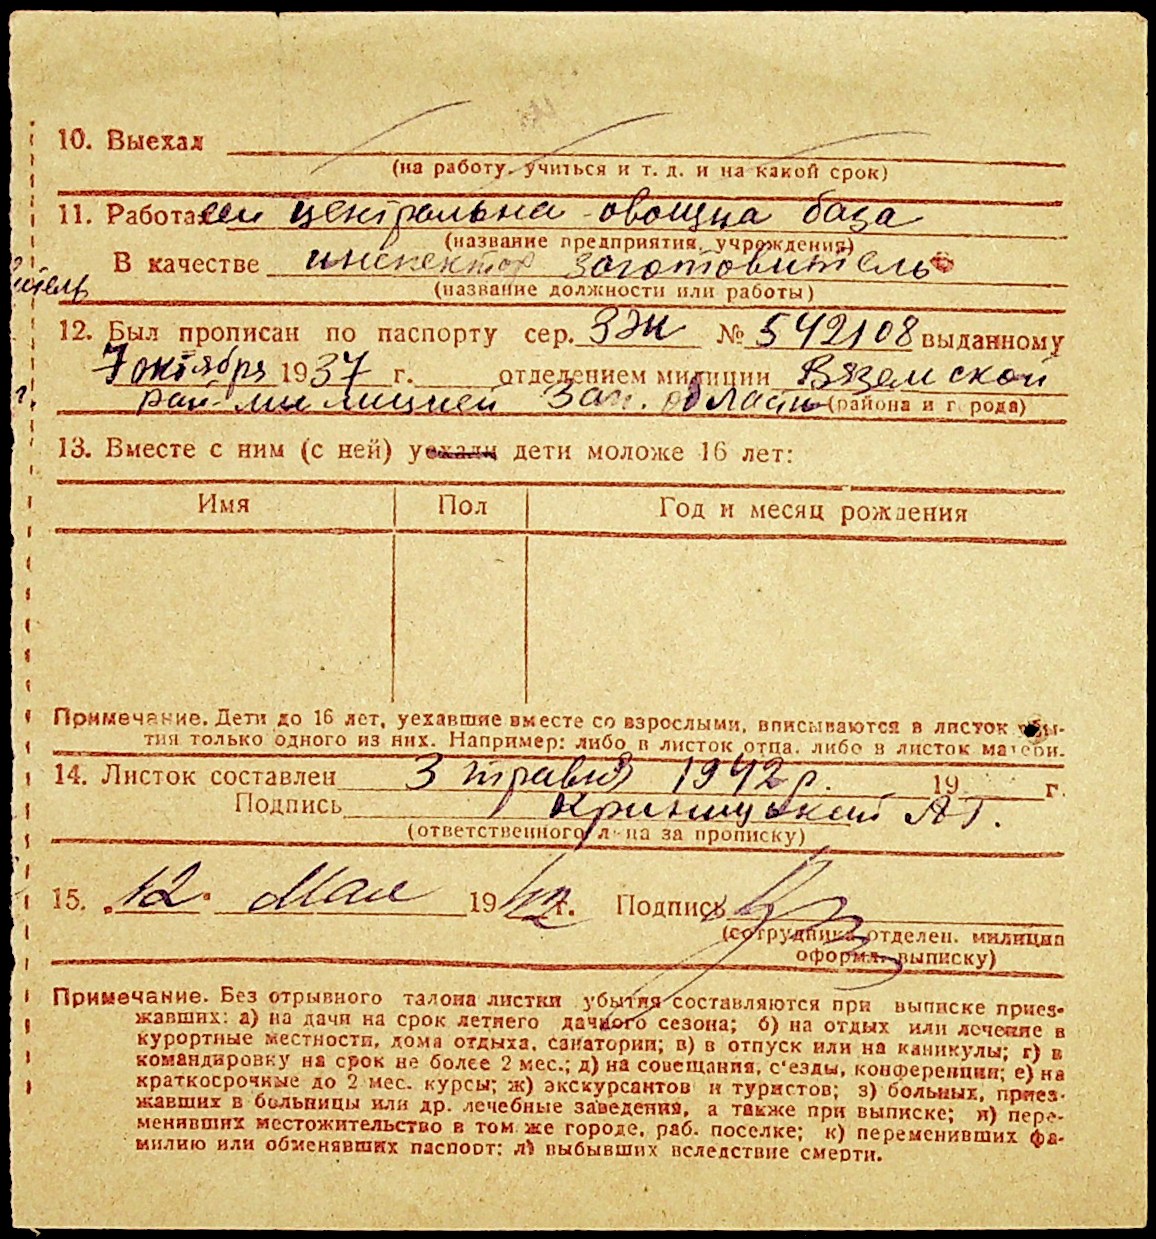 10. Выехал
(на работу, учиться и т. д. и на какой срок)
11. Работал центральна овощна база
(название предприятия, учреждения)
В качестве инспектор заготовитель
(название должности или работы)
итель
12. Был прописан по паспорту сер. ЗЖ № 542108 выданному
7 октября 1937 г. отделением милиции Вяземской
г.
рай-милицией Зап. области (района и города)
13. Вместе с ним (с ней) уехали дети моложе 16 лет:
Имя Пол Год и месяц рождения
Примечание. Дети до 16 лет, уехавшие вместе со взрослыми, вписываются в листок убы-
тия только одного из них. Например: либо в листок отца, либо в листок матери.
14. Листок составлен 3 травня 1942 р. 19 г.
Подпись Криницкий А Г.
(ответственного лица за прописку)
15. 12 Мая 1942 г. Подпись
(сотрудника отделен. милиции
оформл. выписку)
Примечание. Без отрывного талона листки убытия составляются при выписке приез-
жавших: а) на дачи на срок летнего дачного сезона; б) на отдых или лечение в
курортные местности, дома отдыха, санатории; в) в отпуск или на каникулы; г) в
командировку на срок не более 2 мес.; д) на совещания, с'езды, конференции; е) на
краткосрочные до 2 мес. курсы; ж) экскурсантов и туристов; з) больных, приез-
жавших в больницы или др. лечебные заведения, а также при выписке; и) пере-
менивших местожительство в том же городе, раб. поселке; к) переменивших фа-
милию или обменявших паспорт; л) выбывших вследствие смерти.